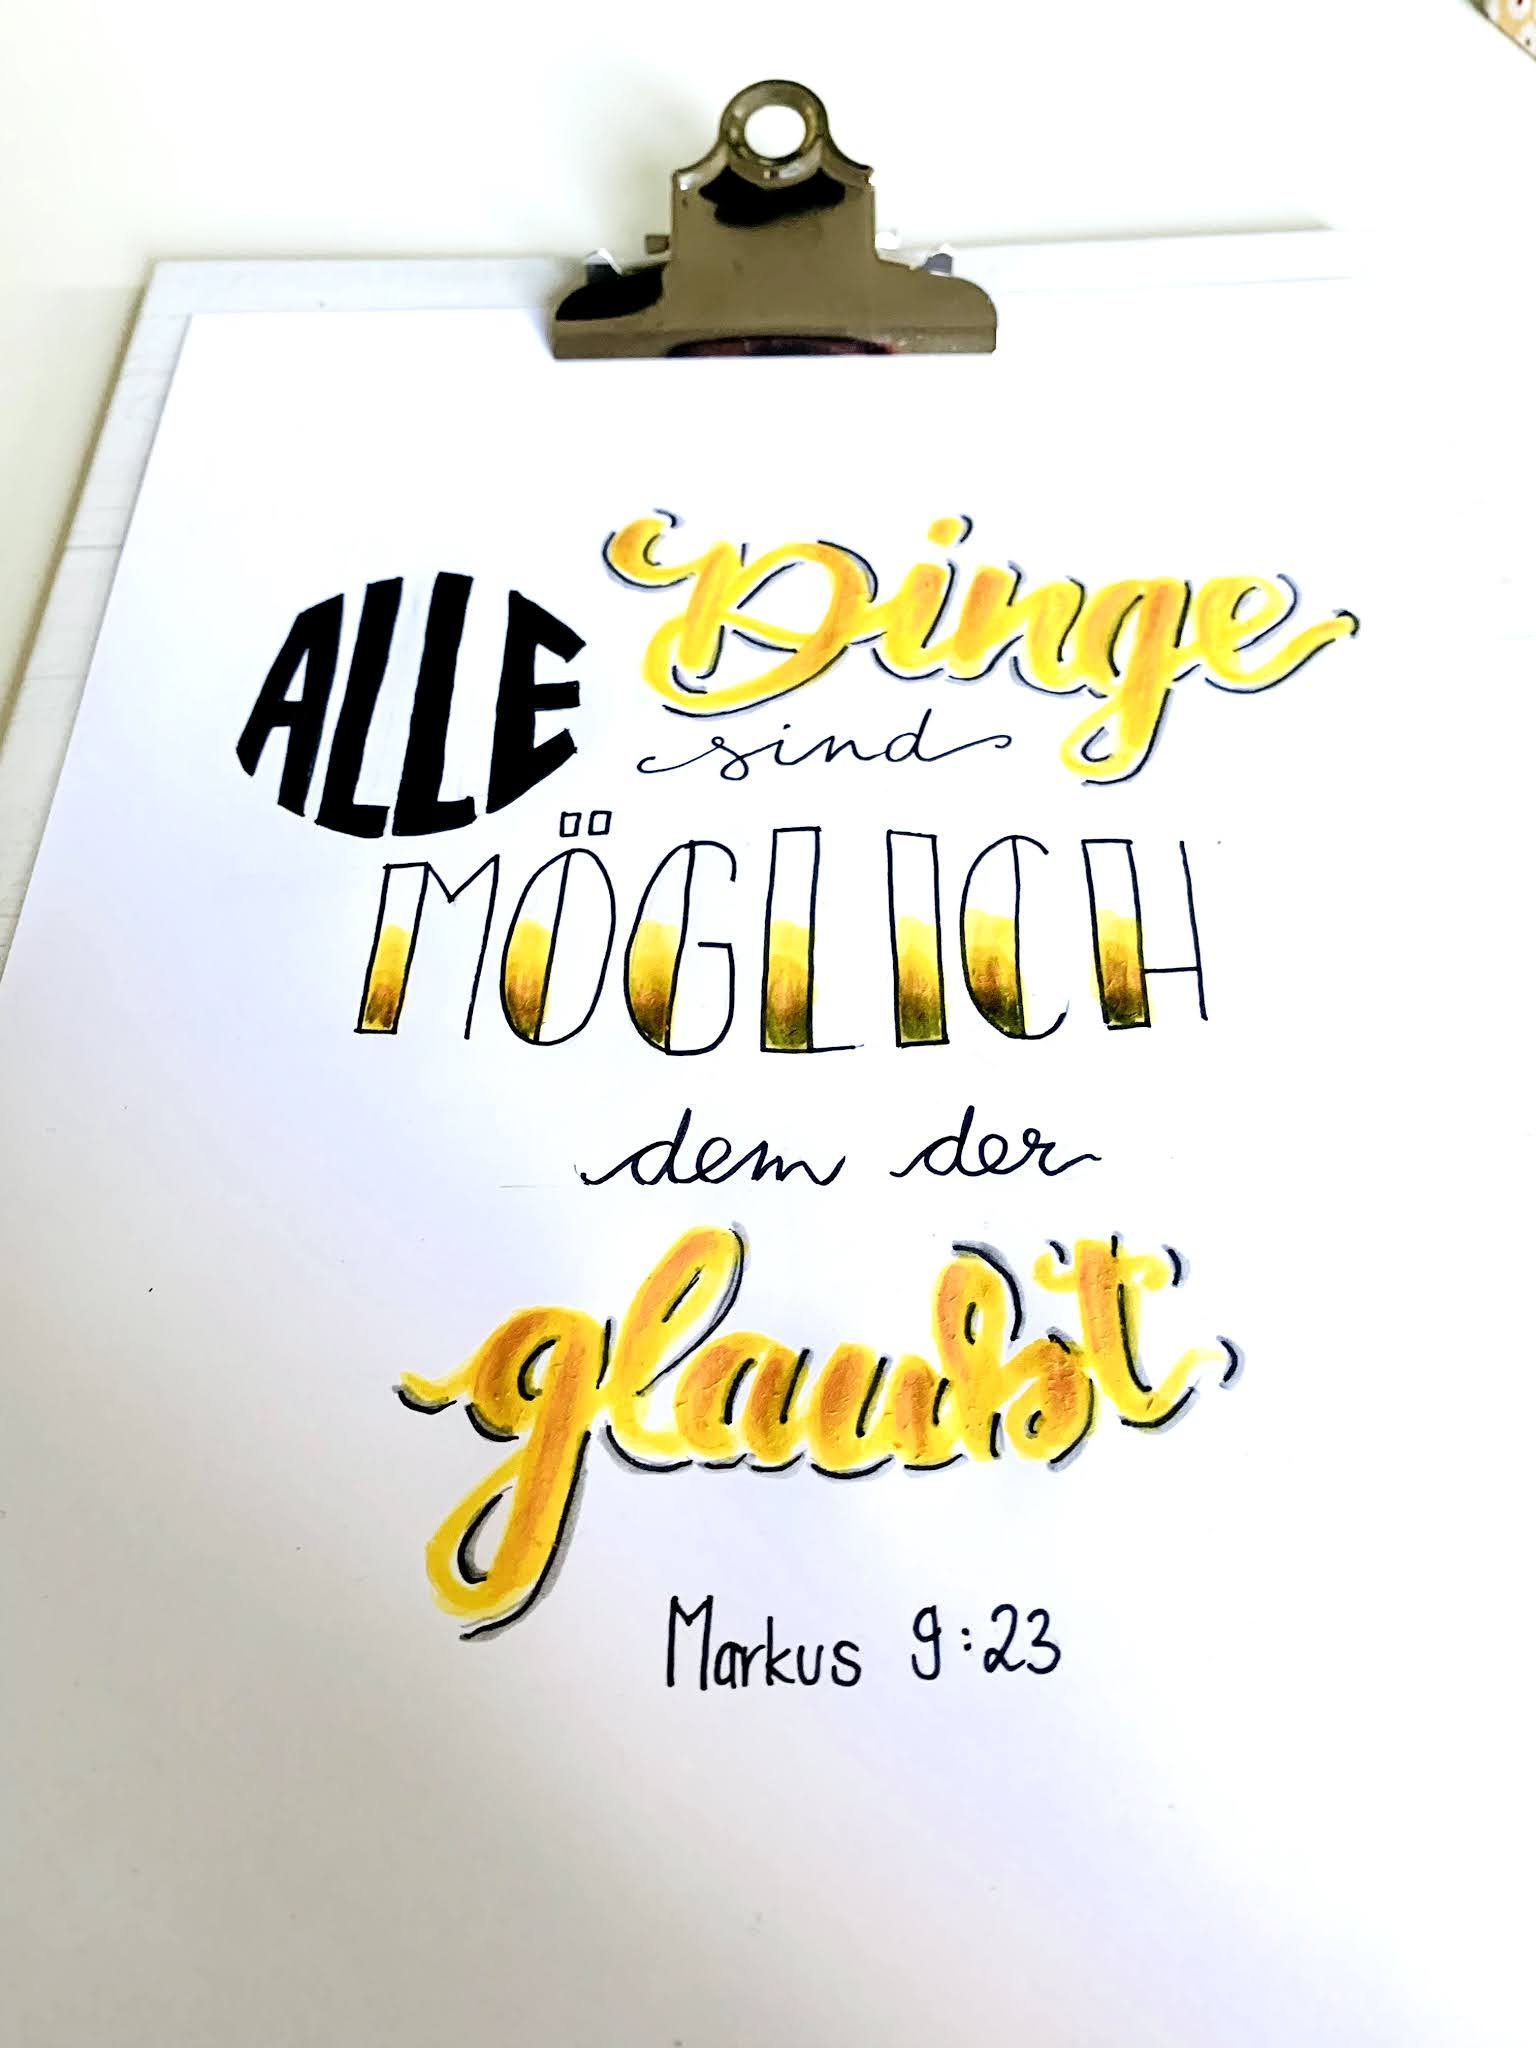 ALLE Dinge
sind
MÖGLICH
dem der
glaubt
Markus 9:23